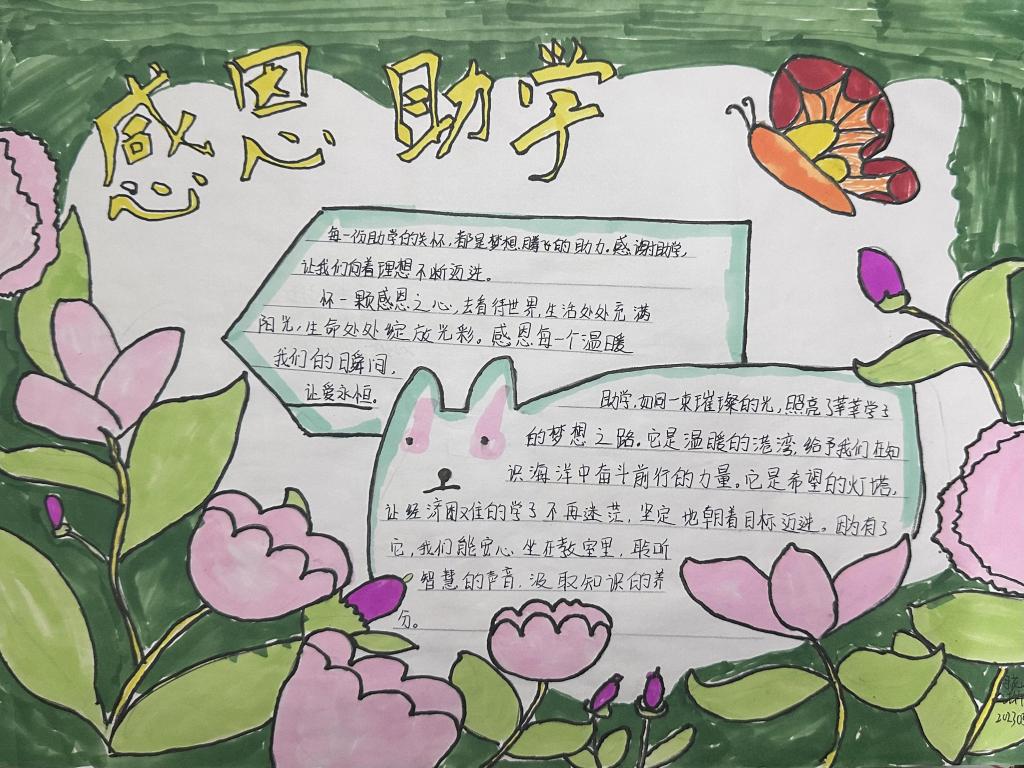 感恩助学
每一份助学的关怀,都是梦想腾飞的助力。感谢助学,
让我们向着理想不断迈进。
怀一颗感恩之心,去看待世界,生活处处充满
阳光,生命处处绽放光彩。感恩每一个温暖
我们的瞬间,
让爱永恒。
助学,如同一束璀璨的光,照亮了莘莘学子
的梦想之路。它是温暖的港湾,给予我们在知
识海洋中奋斗前行的力量。它是希望的灯塔,
让经济困难的学子不再迷茫,坚定地朝着目标迈进。因为有了
它,我们能安心坐在教室里,聆听
智慧的声音,汲取知识的养
分。